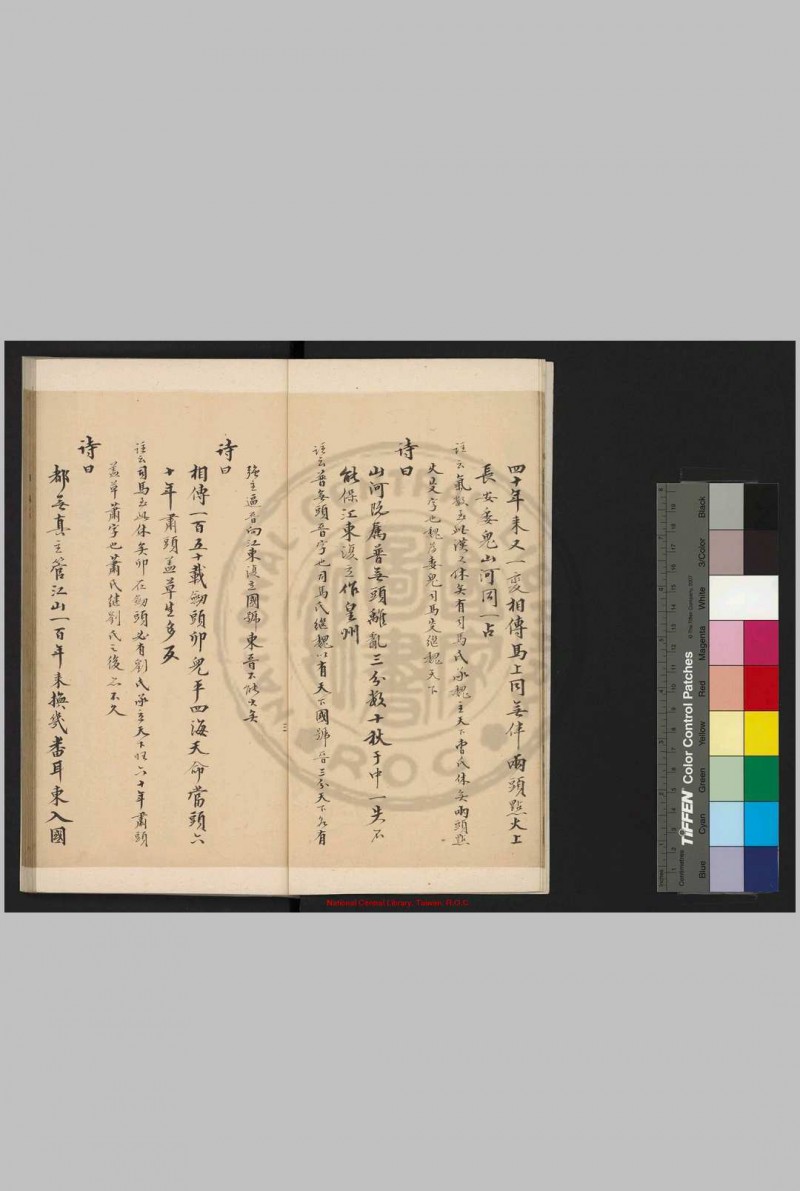 四十年来又一变相傳馬上同無伴兩頭點火上
長安委鬼山河同一占
註云氣數至此漢之休矣有司馬氏承魏主天下曹氏休矣兩頭點
火炎字也魏乃委鬼司馬炎繼魏天下
詩曰
山河既属普無頭離亂三分数十秋子中一失不
能保江東復立作皇州
註云普無頭晉字也司馬氏繼魏以有天下國號晉三分天下各有
強主逼晉向江東復立國號東晉不能久矣
三
詩曰
相傳一百五十載劒頭卯兒平四海天命當頭六
十年肅頭盖草生多反
註云司馬至此休矣卯在劒頭必有劉氏承立天下恒六十年肅頭
盖草蕭字也蕭氏継劉氏之後亦不久
詩曰
都無真主管江山一百年来換幾番耳東入國
National Central Library, Taiwan, R.O.C
TIFFEN Color Control Patches
© The Tiffen Company, 2007
Blue
Cyan
Green
Yellow
Red
Magenta
White
3/Color
Black
Centimetres
Inches